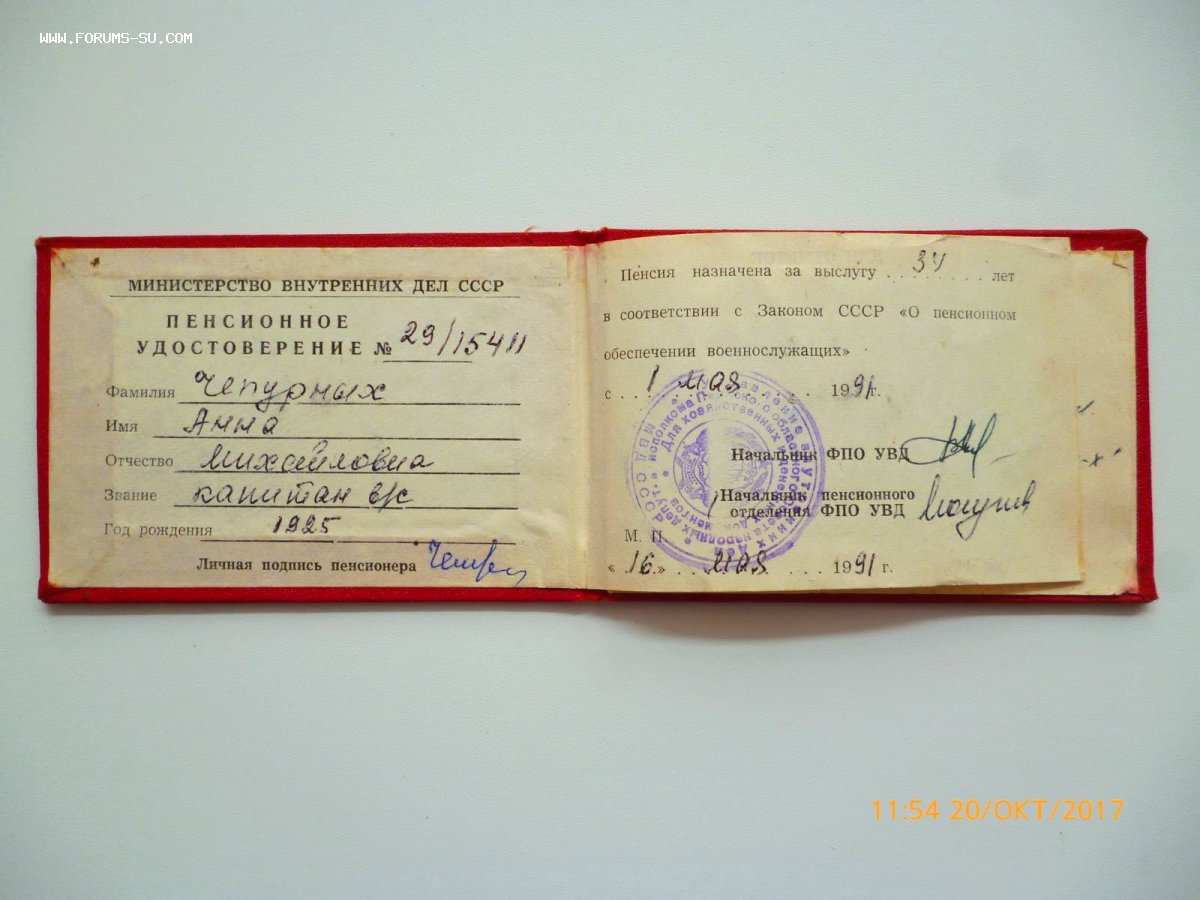 WWW.FORUMS-SU.COM
МИНИСТЕРСТВО ВНУТРЕННИХ ДЕЛ СССР
ПЕНСИОННОЕ
УДОСТОВЕРЕНИЕ № 29/15411
Фамилия Чепурных
Имя Анна
Отчество Михайловна
Звание капитан в/с
Год рождения 1925
Личная подпись пенсионера
Пенсия назначена за выслугу 34 лет
в соответствии с Законом СССР «О пенсионном
обеспечении военнослужащих»
с 1 мая 1991г.
Начальник ФПО УВД
Начальник пенсионного
отделения ФПО УВД
М. П.
«16» мая 1991 г.
11:54 20/ОКТ/2017